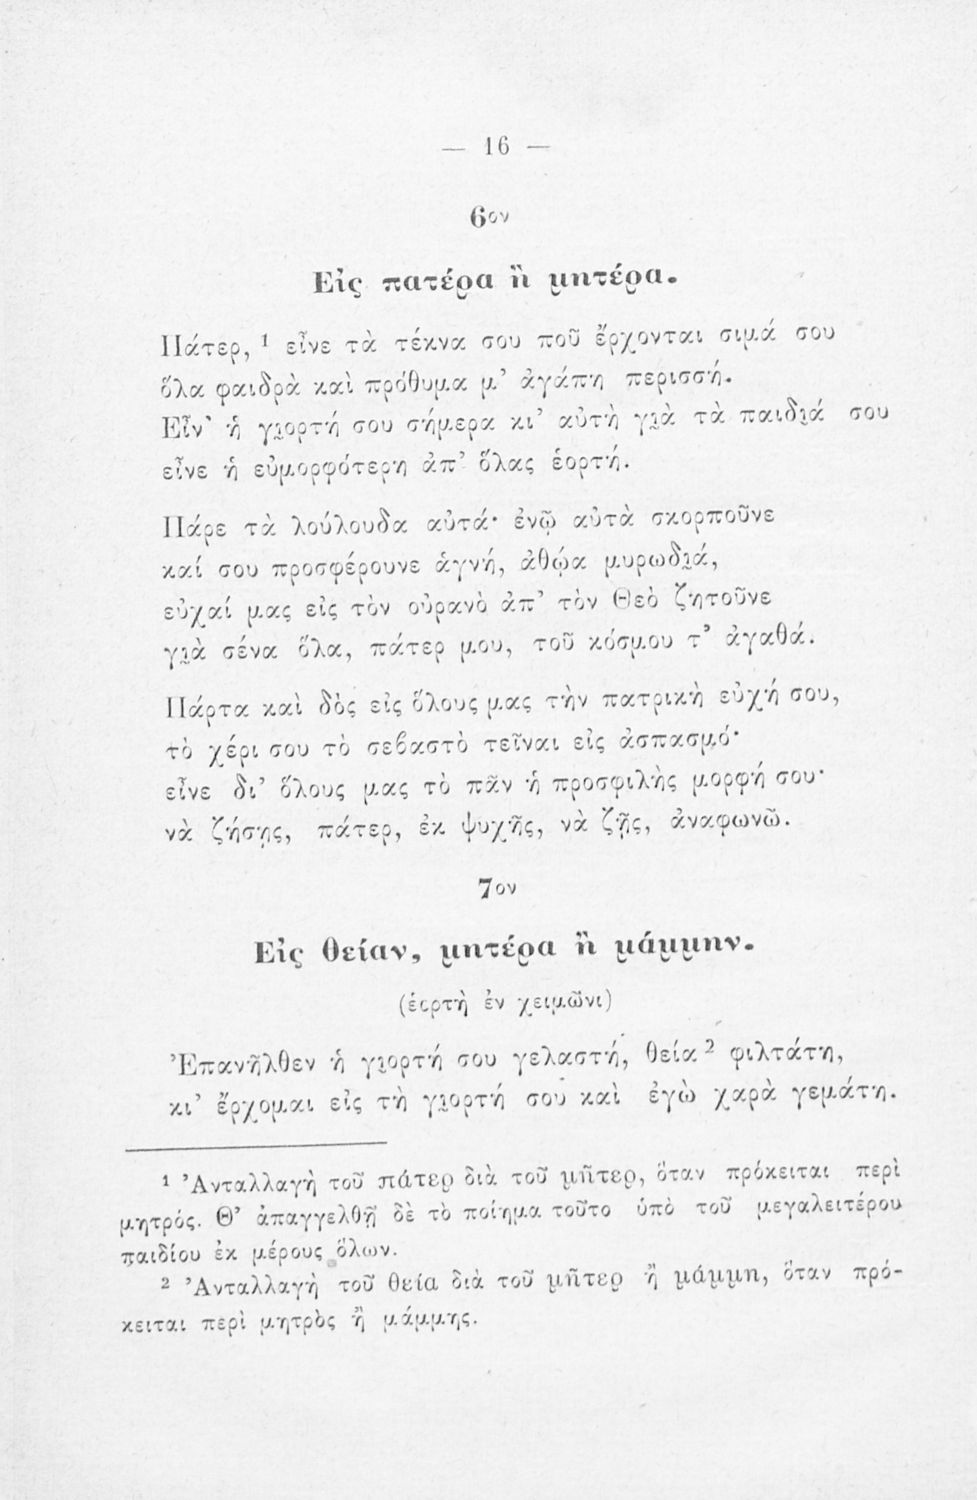 — 16 —
6ον
Εἰς πατέρα ἢ μητέρα.
Πάτερ, ¹ εἶνε τὰ τέκνα σου ποῦ ἔρχονται σιμά σου
ὅλα φαιδρὰ καὶ πρόθυμα μ’ ἀγάπη περισσή.
Εἶν’ ἡ γιορτή σου σήμερα κι’ αὐτὴ γιὰ τὰ παιδιά σου
εἶνε ἡ εὐμορφότερη ἀπ’ ὅλας ἑορτή.
Πάρε τὰ λούλουδα αὐτά· ἐνῷ αὐτὰ σκορποῦνε
καί σου προσφέρουνε ἁγνή, ἀθῴα μυρωδιά,
εὐχαί μας εἰς τὸν οὐρανὸ ἀπ’ τὸν Θεὸ ζητοῦνε
γιὰ σένα ὅλα, πάτερ μου, τοῦ κόσμου τ’ ἀγαθά.
Πάρτα καὶ δὸς εἰς ὅλους μας τὴν πατρικὴ εὐχή σου,
τὸ χέρι σου τὸ σεβαστὸ τεῖναι εἰς ἀσπασμό·
εἶνε δι’ ὅλους μας τὸ πᾶν ἡ προσφιλὴς μορφή σου·
νὰ ζήσῃς, πάτερ, ἐκ ψυχῆς, νὰ ζῇς, ἀναφωνῶ.
7ον
Εἰς θείαν, μητέρα ἢ μάμμην.
(ἑορτὴ ἐν χειμῶνι)
Ἐπανῆλθεν ἡ γιορτή σου γελαστή, θεία ² φιλτάτη,
κι’ ἔρχομαι εἰς τὴ γιορτή σου καὶ ἐγὼ χαρὰ γεμάτη.
¹ Ἀνταλλαγὴ τοῦ πάτερ διὰ τοῦ μῆτερ, ὅταν πρόκειται περὶ
μητρός. Θ’ ἀπαγγελθῇ δὲ τὸ ποίημα τοῦτο ὑπὸ τοῦ μεγαλειτέρου
παιδίου ἐκ μέρους ὅλων.
² Ἀνταλλαγὴ τοῦ θεία διὰ τοῦ μῆτερ ἢ μάμμη, ὅταν πρό-
κειται περὶ μητρὸς ἢ μάμμης.